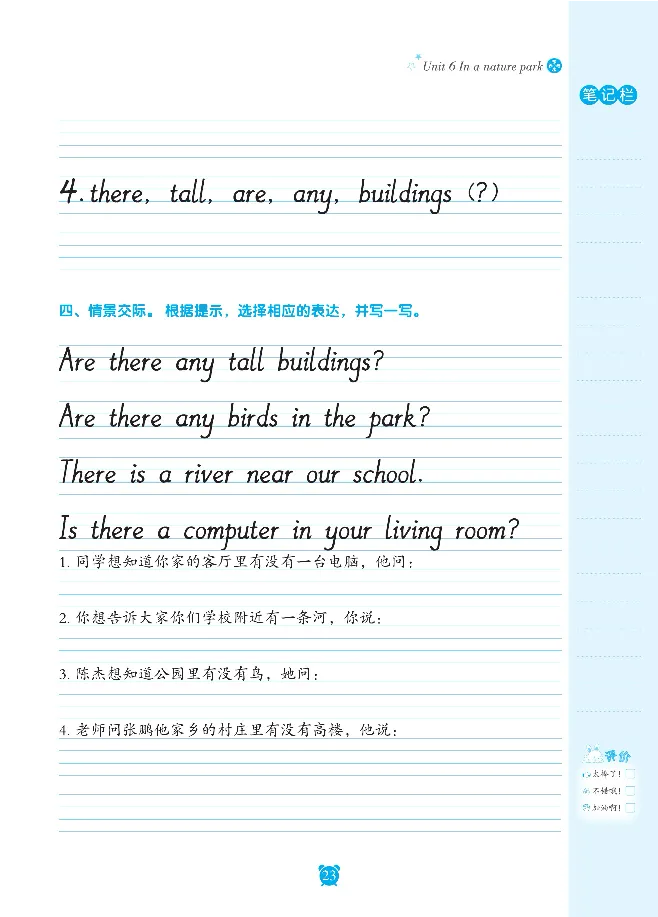 Unit 6 In a nature park
笔记栏
4. there, tall, are, any, buildings (?)
四、情景交际。根据提示，选择相应的表达，并写一写。
Are there any tall buildings?
Are there any birds in the park?
There is a river near our school.
Is there a computer in your living room?
1. 同学想知道你家的客厅里有没有一台电脑，他问：
2. 你想告诉大家你们学校附近有一条河，你说：
3. 陈杰想知道公园里有没有鸟，她问：
4. 老师问张鹏他家乡的村庄里有没有高楼，他说：
评价
太棒了！
不错哦！
加油啊！
23